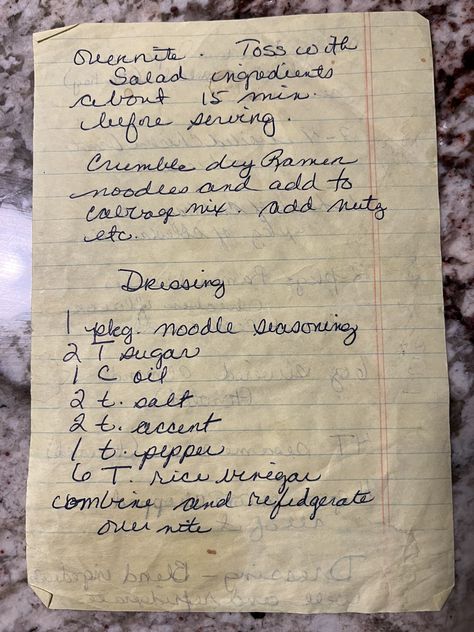 overnite. Toss with
Salad ingredients
about 15 min.
before serving.
Crumble dry Ramen
noodles and add to
cabbage mix. add nuts
etc.
Dressing
1 pkg. noodle seasoning
2 T sugar
1 C oil
2 t. salt
2 t. accent
1 t. pepper
6 T. rice vinegar
combine and refidgerate
over nite